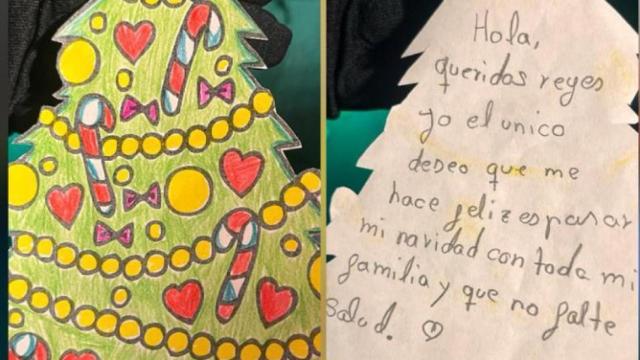 Hola,
queridos reyes
yo el unico
deseo que me
hace feliz es pasar
mi navidad con toda mi
familia y que no falte
salud.